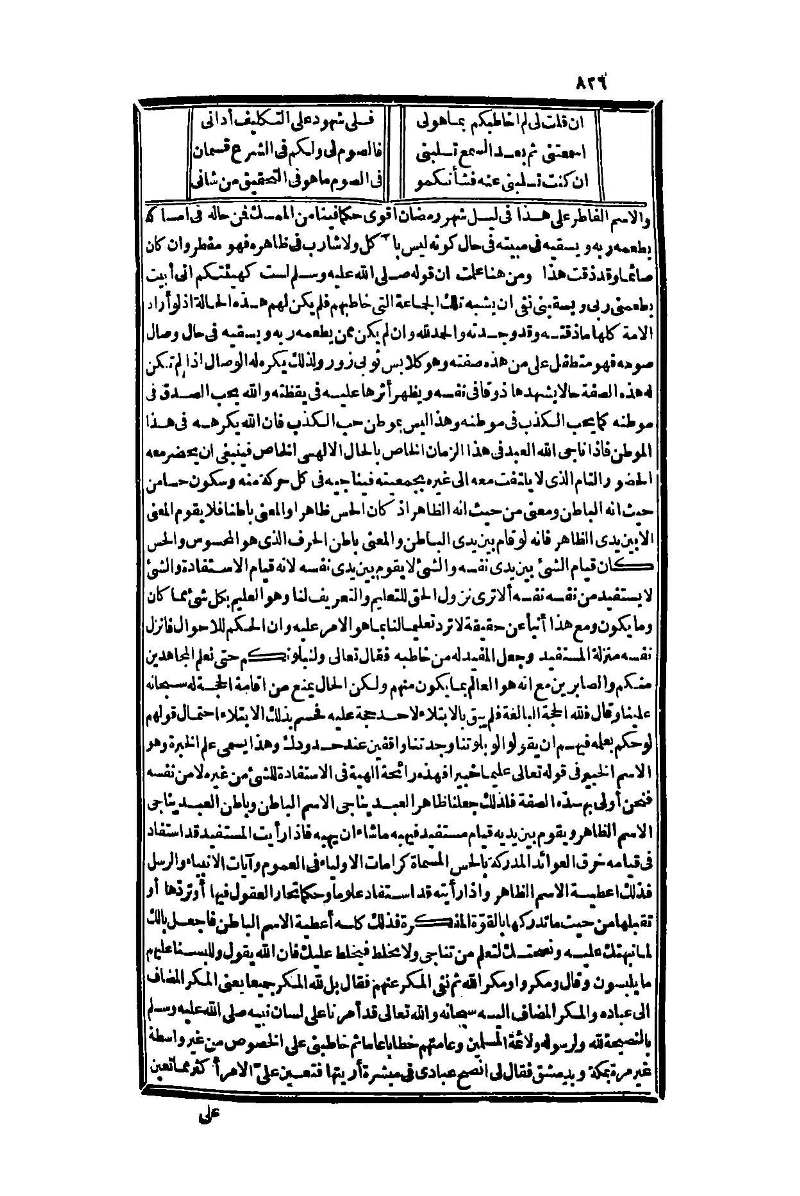 ٨٢٦
ان قلت لى لم اخاطبكم بماهولى فلى شهود على التكليف أدانى
اسمعتنى ثم بعد السمع تسلبنى فالصوم لى ولكم فى الشرع قسمان
ان كنت تسلبنى عنه فشأنكمو فى الصوم ماهو فى التحقيق من شانى
والاسم الفاطر على هذا فى ليل شهر رمضان أقوى حكما فينا من الممسك فمن حاله فى امساكه
يطعمه ربه ويسقيه فى مبيته فى حال كونه ليس بآكل ولا شارب فى ظاهره فهو مفطر وان كان
صائما وقد ذقت هذا ومن هنا علمت ان قوله صلى الله عليه وسلم لست كهيئتكم انى أبيت
يطعمنى ربى ويسقينى نفى ان يشبه تلك الجماعة التى خاطبهم فلم يكن لهم هذه الحالة اذ لو أراد
الامة كلها ما ذقته وقد وجدته والحمد لله وان لم يكن ممن يطعمه ربه ويسقيه فى حال وصال
صومه فهو متطفل على من هذه صفته وهو كلابس ثوبى زور ولذلك يكره له الوصال اذا لم تكن
له هذه الصفة حالا يشهدها ذوقا فى نفسه ويظهر أثرها عليه فى يقظته والله يحب الصدق فى
موطنه كما يحب الكذب فى موطنه وهذا ليس بموطن حب الكذب فان الله يكرهه فى هذا
الموطن فاذا ناجى الله العبد فى هذا الزمان الخاص بالحال الالهى الخاص فينبغى ان يحضر معه
الحضور التام الذى لا يلتفت معه الى غيره بجمعيته فيناجيه فى كل حركة منه وسكون حسا من
حيث انه الباطن ومعنى من حيث انه الظاهر اذ كان الحس ظاهرا والمعنى باطنا فلا يقوم المعنى
الا بين يدى الظاهر فانه لو قام بين يدى الباطن والمعنى باطن الحرف الذى هو المحسوس والحس
كان قيام الشئ بين يدى نفسه والشئ لا يقوم بين يدى نفسه لانه قيام الاستفادة والشئ
لا يستفيد من نفسه نفسه ألا ترى نزول الحق للتعليم والتعريف لنا وهو العليم بكل شئ مما كان
وما يكون ومع هذا أنبأ عن حقيقة لا ترد تعليما لنا بما هو الامر عليه وان الحكم للاحوال فانزل
نفسه منزلة المستفيد وجعل المفيد له من خاطبه فقال تعالى ولنبلونكم حتى نعلم المجاهدين
منكم والصابرين مع انه هو العالم بما يكون منهم ولكن الحال يمنع من اقامة الحجة له سبحانه
علينا وقال فلله الحجة البالغة فلم يبق بالابتلاء لاحد حجة عليه فحسم بذلك الابتلاء احتمال قولهم
لو حكم بعلمه فيهم ان يقولوا لو بلوتنا وجدتنا واقفين عند حدودك وهذا يسمى علم الخبرة وهو
الاسم الخبير فى قوله تعالى عليما خبيرا فهذه رائحة الهية فى الاستفادة للشئ من غيره لا من نفسه
فنحن أولى بهذه الصفة فلذلك جعلنا ظاهر العبد يناجى الاسم الباطن وباطن العبد يناجى
الاسم الظاهر ويقوم بين يديه قيام مستفيد فيهبه ما شاء ان يهبه فاذا رأيت المستفيد قد استفاد
فى قيامه خرق العوائد المدركة بالحس المسماة كرامات الاولياء فى العموم وآيات الانبياء والرسل
فذلك اعطية الاسم الظاهر واذا رأيته قد استفاد علوما وحكما تحار العقول فيها أو تردها أو
تقبلها من حيث ما تدركها بالقوة المفكرة فذلك كله أعطية الاسم الباطن فاجعل بالك
لما نبهتك عليه ونصحتك لتعلم من تناجى ولا تخلط فيخلط عليك فان الله يقول وللبسنا عليهم
ما يلبسون وقال ومكروا ومكر الله ثم نفى المكر عنهم فقال بل لله المكر جميعا يعنى المكر المضاف
الى عباده والمكر المضاف اليه سبحانه والله تعالى قد أمرنا على لسان نبيه صلى الله عليه وسلم
بالنصيحة لله ولرسوله ولائمة المسلمين وعامتهم خطابا عاما ثم خاطبنى على الخصوص من غير واسطة
غير مرة بمكة وبدمشق فقال لى انصح عبادى فى مبشرة أريتها فتعين علىّ الامر أكثر مما تعين
على